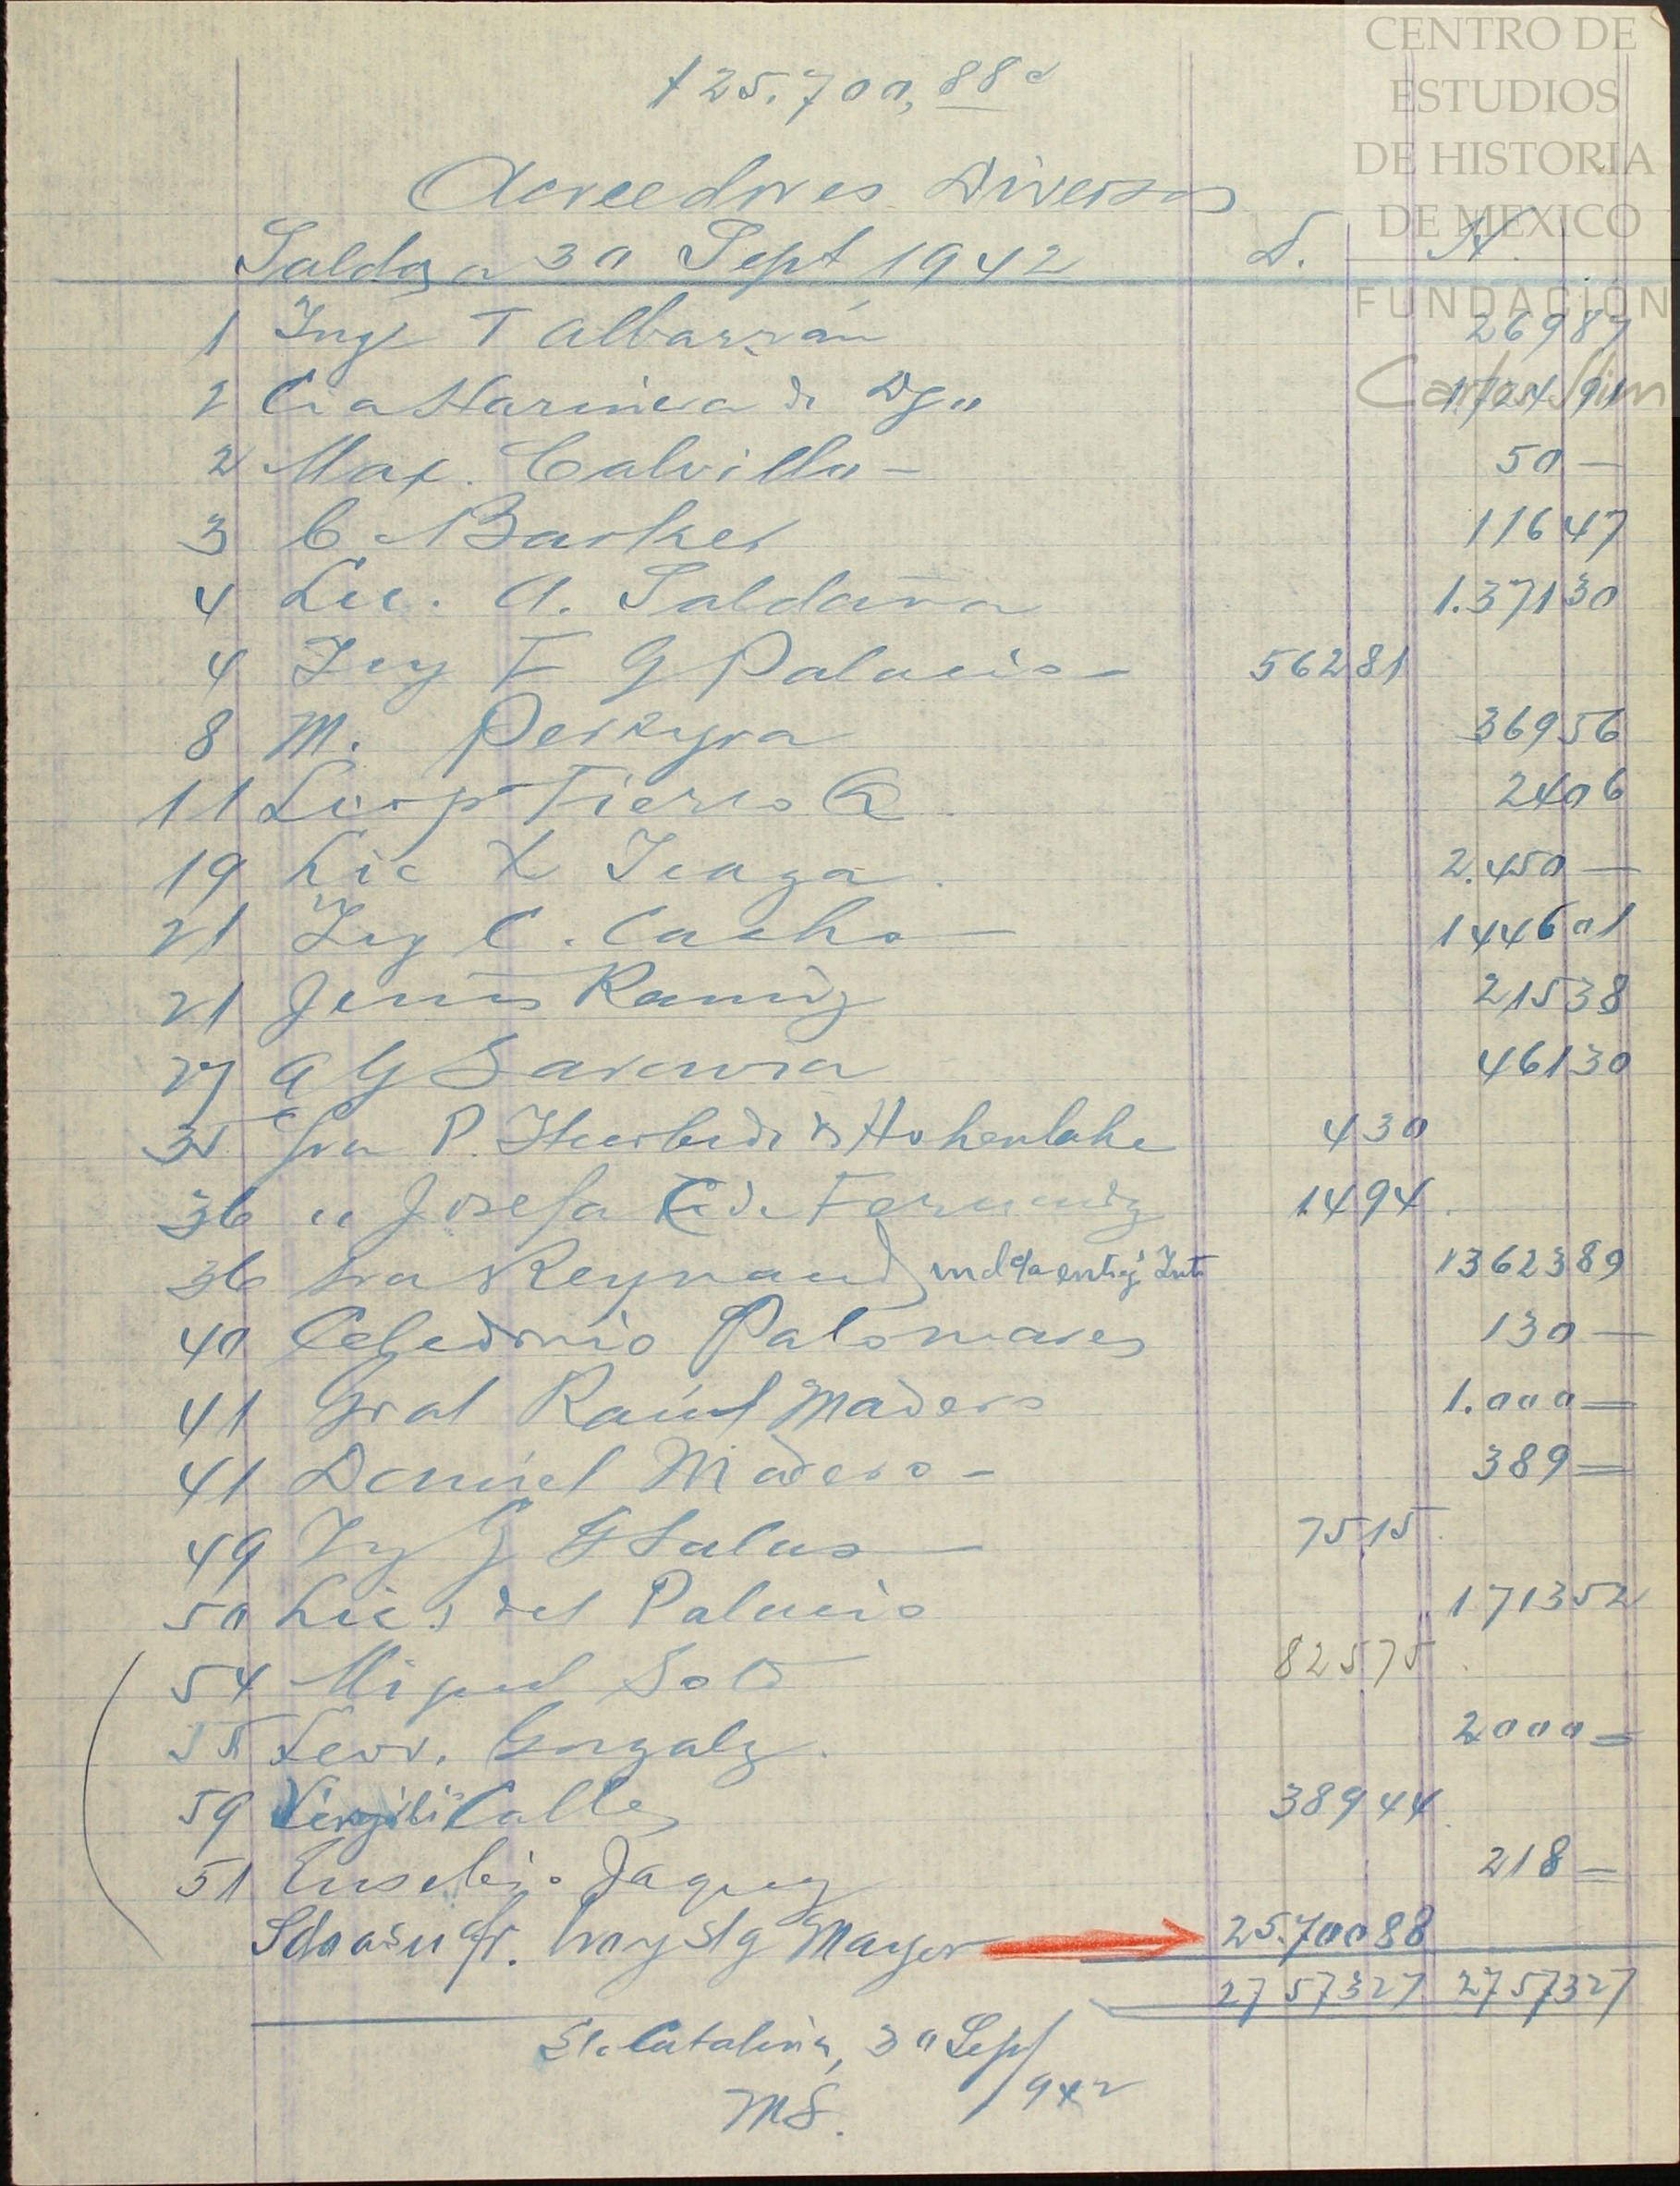 CENTRO DE
ESTUDIOS
DE HISTORIA
DE MEXICO
FUNDACIÓN
Carlos Slim
$25.700,88c
Acreedores Diversos
Saldos a 30 Sept 1942 D. H.
1 Ing T Albarrán 26987
2 Cia Harinera de Dgo 1.724 91
2 Max. Calvillo - 50 —
3 C Barker 116 47
4 Lic. A. Saldaña 1.371 30
4 Ing F G Palacio - 562 81
8 M. Pereyra 369 56
11 Leop Fierro 24 06
19 Lic X Icaza. 2.450 —
21 Ing C. Cacho — 1446 01
21 Jesús Ramírez 215 38
27 A G Saravia 461 30
35 Sra P. Iturbide de Hohenlohe 4 30
36 " Josefa de Fernandez 14 94
36 Sra Reynaud 13623 89
40 Celedonio Palomares 130 —
41 Gral Raúl Madero 1.000 =
41 Daniel Madero - 389 =
49 Ing G Salas — 75 15
50 Lic del Palacio 1713 52
54 Miguel Soto 825 75
55 Gonzalz. 2000 =
59 Virgilio Calles 389 44
51 Eusebio Jaquez 218 =
Mayor 25.700 88
27573 27 27573 27
Sta Catalina, 30 Sept/942
MS.